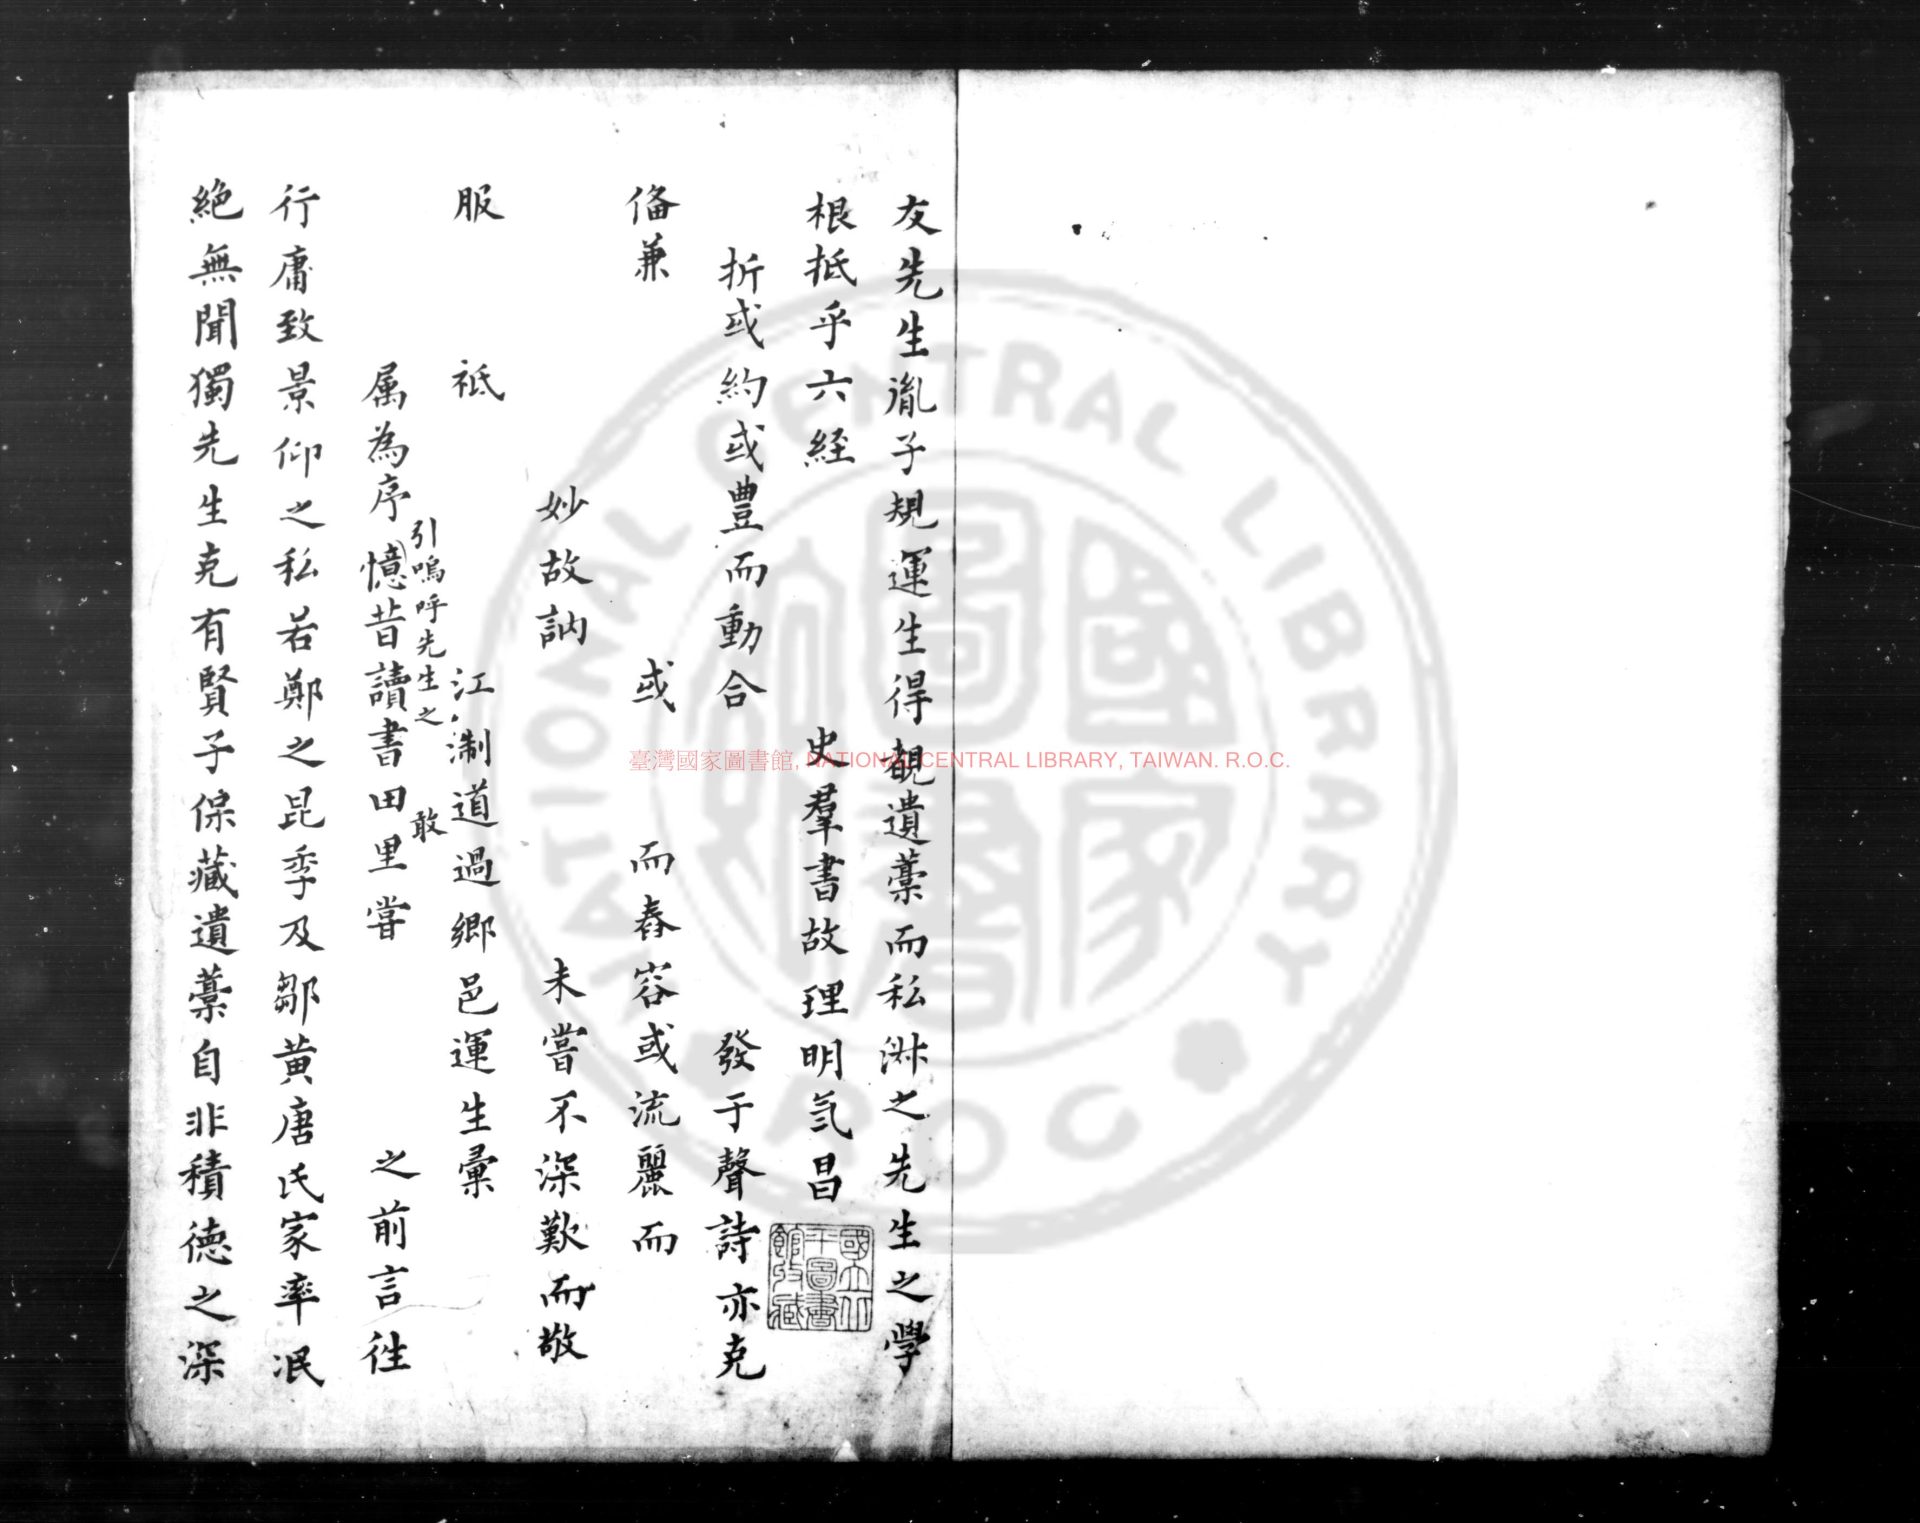 友先生胤子規運生得覩遺藁而私淋之先生之學
根抵乎六経　史羣書故理明気昌
折或約或豊而動合　發于聲詩亦克
俻兼　或　而舂容或流麗而
妙故訥　未嘗不深歎而敬
服　祇　江淛道過鄉邑運生彚
引嗚呼先生之　敢
属為序憶昔讀書田里嘗　之前言徃
行庸致景仰之私若鄭之昆季及鄒黄唐氏家率泯
絶無聞獨先生克有賢子保藏遺藁自非積德之深
國立中央圖書館收藏
臺灣國家圖書館, NATIONAL CENTRAL LIBRARY, TAIWAN. R.O.C.
NATIONAL CENTRAL LIBRARY
R.O.C
國家圖書